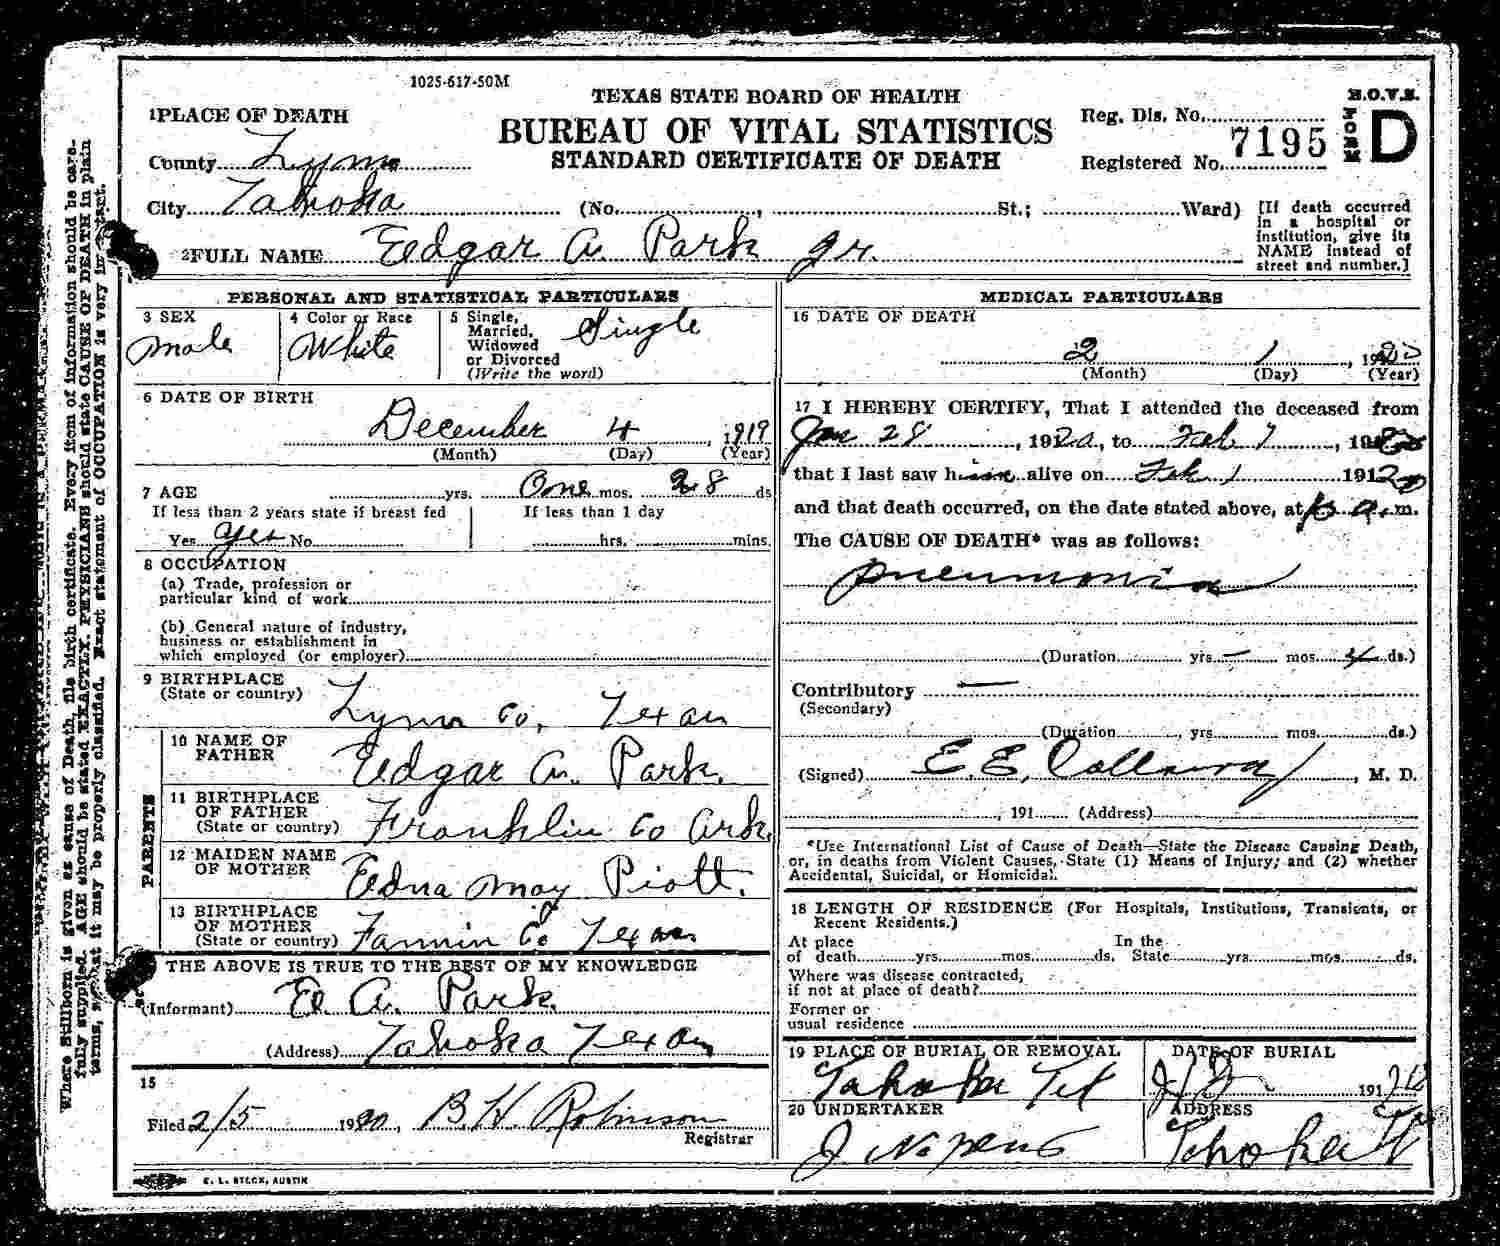 1025-617-50M
TEXAS STATE BOARD OF HEALTH
BUREAU OF VITAL STATISTICS
STANDARD CERTIFICATE OF DEATH
B.O.V.S.
FORM D
Reg. Dis. No.
Registered No. 7195
1 PLACE OF DEATH
County Lynn
City Tahoka (No. , St.; Ward)
[If death occurred
in a hospital or
institution, give its
NAME instead of
street and number.]
2 FULL NAME Edgar A. Park Jr.
PERSONAL AND STATISTICAL PARTICULARS
3 SEX
male
4 Color or Race
White
5 Single,
Married,
Widowed
or Divorced
(Write the word)
Single
6 DATE OF BIRTH
December 4, 1919
(Month) (Day) (Year)
7 AGE yrs. One mos. 28 ds
If less than 2 years state if breast fed
Yes yes No
If less than 1 day
hrs. mins.
8 OCCUPATION
(a) Trade, profession or
particular kind of work
(b) General nature of industry,
business or establishment in
which employed (or employer)
9 BIRTHPLACE
(State or country)
Lynn Co, Texas
PARENTS
10 NAME OF
FATHER
Edgar A. Park.
11 BIRTHPLACE
OF FATHER
(State or country)
Franklin Co Ark.
12 MAIDEN NAME
OF MOTHER
Edna May Piott.
13 BIRTHPLACE
OF MOTHER
(State or country)
Fannin Co Texas
THE ABOVE IS TRUE TO THE BEST OF MY KNOWLEDGE
(Informant) Ed. A. Park.
(Address) Tahoka Texas
15
Filed 2/5 1920, B. H. Robinson
Registrar
C. L. STECK, AUSTIN
MEDICAL PARTICULARS
16 DATE OF DEATH
2 1, 1920
(Month) (Day) (Year)
17 I HEREBY CERTIFY, That I attended the deceased from
Jan 28, 1920, to Feb 1, 1920
that I last saw him alive on Feb 1 1920
and that death occurred, on the date stated above, at a.m.
The CAUSE OF DEATH* was as follows:
pneumonia
(Duration yrs – mos. 4 ds.)
Contributory —
(Secondary)
(Duration , yrs mos. ds.)
(Signed) E. E. Callaway, M. D.
, 191 (Address)
*Use International List of Cause of Death—State the Disease Causing Death,
or, in deaths from Violent Causes, State (1) Means of Injury; and (2) whether
Accidental, Suicidal, or Homicidal.
18 LENGTH OF RESIDENCE (For Hospitals, Institutions, Transients, or
Recent Residents.)
At place
of death yrs. mos. ds.
In the
State yrs mos. ds.
Where was disease contracted,
if not at place of death?
Former or
usual residence
19 PLACE OF BURIAL OR REMOVAL
Tahoka Tex
DATE OF BURIAL
191
20 UNDERTAKER
ADDRESS
Tahoka
Where Stillborn is given as cause of Death, file birth certificate. Every item of information should be care-
fully supplied. AGE should be stated EXACTLY. PHYSICIANS should state CAUSE OF DEATH in plain
terms, so that it may be properly classified. Exact statement of OCCUPATION is very important.